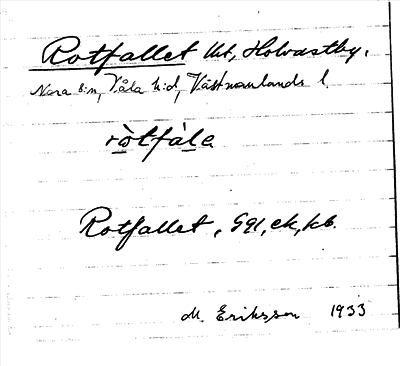 Rotfallet lht, Holvastby.
Nora s:n, Våla h:d, Västmanlands l.
ròtfàla
Rotfallet, GGl, ek, kb.
M. Eriksson 1933